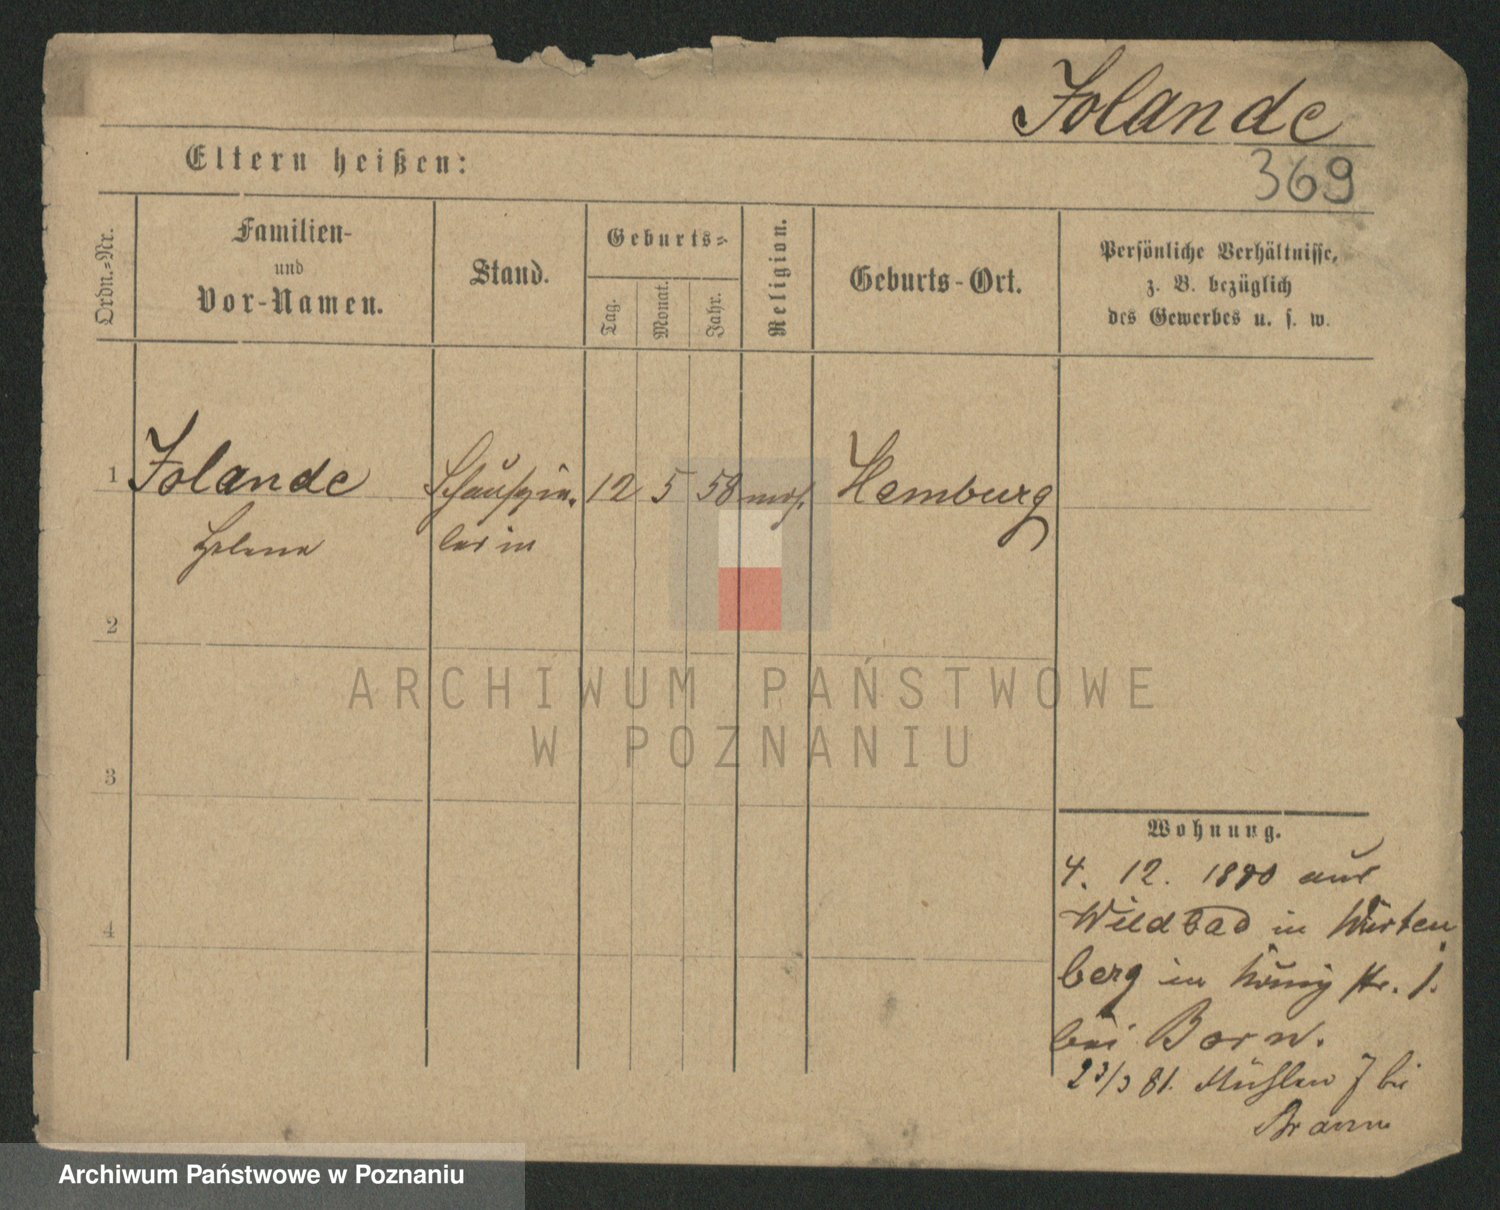 Jolande
369
Eltern heißen:
Ordn.=Nr.
Familien-
und
Vor-Namen.
Stand.
Geburts=
Tag.
Monat.
Jahr.
Religion.
Geburts-Ort.
Persönliche Verhältnisse,
z. B. bezüglich
des Gewerbes u. s. w.
1 Jolande Schauspie- 12 5 58 mos. Hamburg
Helene lerin
2
3
4
Wohnung.
4. 12. 1880 aus
Wildbad in Würten
berg in König str. 1.
bei Born.
23/3 81. Mühlen 7 bei
ARCHIWUM PAŃSTWOWE
W POZNANIU
Archiwum Państwowe w Poznaniu